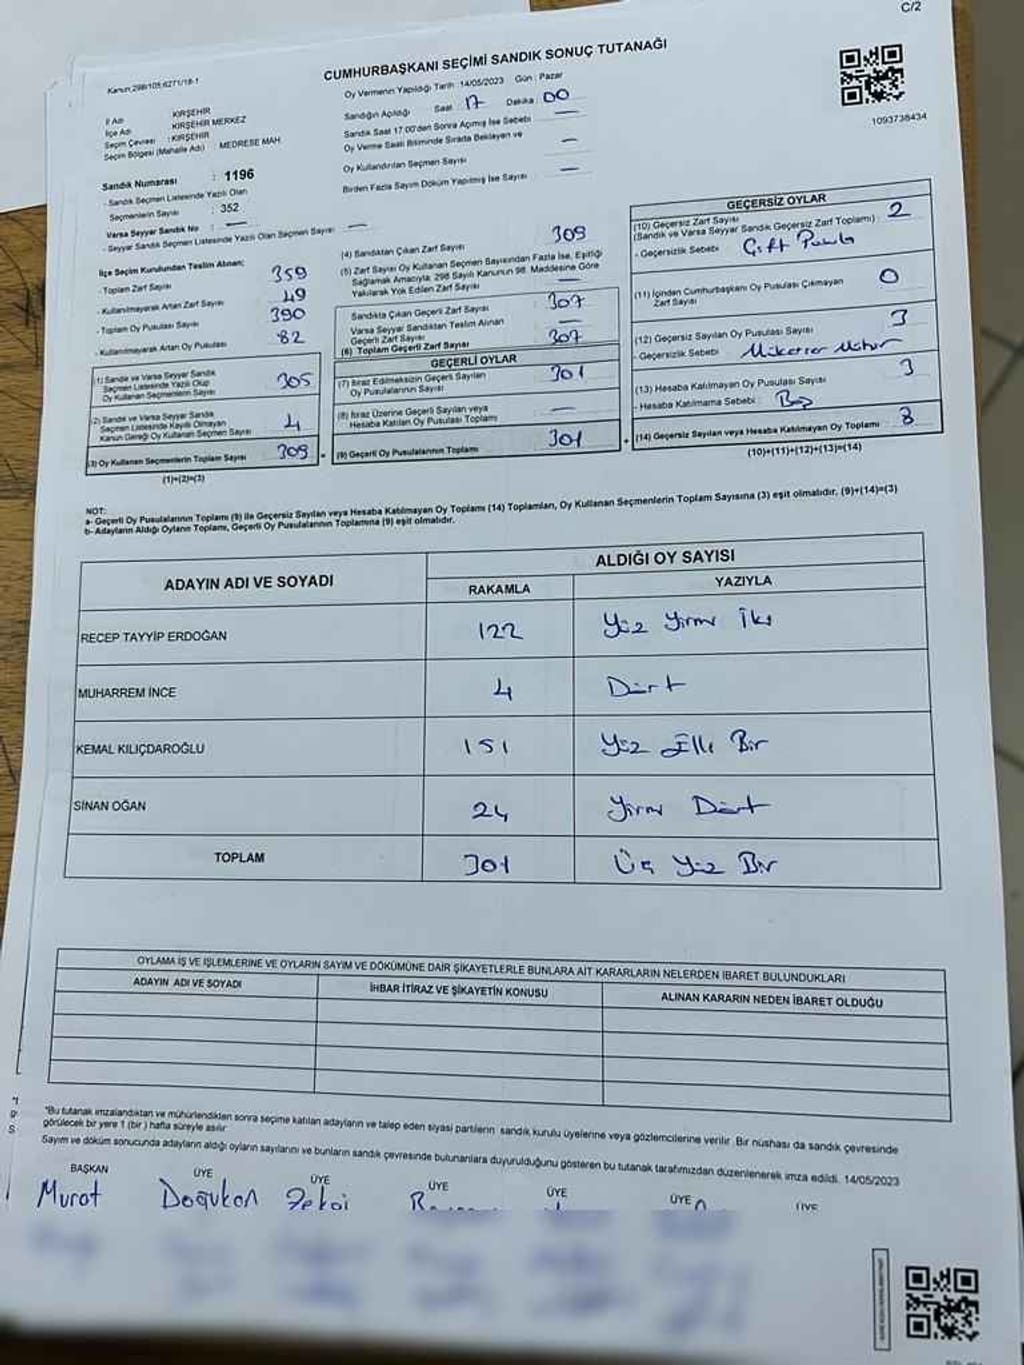 C/2
Kanun:298/105;6271/18-1
CUMHURBAŞKANI SEÇİMİ SANDIK SONUÇ TUTANAĞI
1093738434
İl Adı KIRŞEHİR
İlçe Adı KIRŞEHİR MERKEZ
Seçim Çevresi : KIRŞEHİR
Seçim Bölgesi (Mahalle Adı) : MEDRESE MAH
Sandık Numarası : 1196
- Sandık Seçmen Listesinde Yazılı Olan
Seçmenlerin Sayısı : 352
Varsa Seyyar Sandık No : —
- Seyyar Sandık Seçmen Listesinde Yazılı Olan Seçmen Sayısı —
Oy Vermenin Yapıldığı Tarih :14/05/2023 Gün : Pazar
Sandığın Açıldığı Saat 17 Dakika : 00
Sandık Saat 17.00'den Sonra Açılmış İse Sebebi —
Oy Verme Saati Bitiminde Sırada Bekleyen ve
Oy Kullandırılan Seçmen Sayısı —
Birden Fazla Sayım Döküm Yapılmış İse Sayısı —
İlçe Seçim Kurulundan Teslim Alınan;
- Toplam Zarf Sayısı 359
- Kullanılmayarak Artan Zarf Sayısı 49
- Toplam Oy Pusulası Sayısı 390
- Kullanılmayarak Artan Oy Pusulası 82
(1) Sandık ve Varsa Seyyar Sandık
Seçmen Listesinde Yazılı Olup
Oy Kullanan Seçmenlerin Sayısı 305
(2) Sandık ve Varsa Seyyar Sandık
Seçmen Listesinde Kayıtlı Olmayan
Kanun Gereği Oy Kullanan Seçmen Sayısı 4
(3) Oy Kullanan Seçmenlerin Toplam Sayısı 309
(1)+(2)=(3)
(4) Sandıktan Çıkan Zarf Sayısı 309
(5) Zarf Sayısı Oy Kullanan Seçmen Sayısından Fazla İse, Eşitliği
Sağlamak Amacıyla; 298 Sayılı Kanunun 98. Maddesine Göre
Yakılarak Yok Edilen Zarf Sayısı —
Sandıkta Çıkan Geçerli Zarf Sayısı 307
Varsa Seyyar Sandıktan Teslim Alınan
Geçerli Zarf Sayısı —
(6) Toplam Geçerli Zarf Sayısı 307
GEÇERLİ OYLAR
(7) İtiraz Edilmeksizin Geçerli Sayılan
Oy Pusulalarının Sayısı 301
(8) İtiraz Üzerine Geçerli Sayılan veya
Hesaba Katılan Oy Pusulası Toplamı —
(9) Geçerli Oy Pusulalarının Toplamı 301
GEÇERSİZ OYLAR
(10) Geçersiz Zarf Sayısı
(Sandık ve Varsa Seyyar Sandık Geçersiz Zarf Toplamı) : 2
- Geçersizlik Sebebi Çift
(11) İçinden Cumhurbaşkanı Oy Pusulası Çıkmayan
Zarf Sayısı 0
(12) Geçersiz Sayılan Oy Pusulası Sayısı 3
- Geçersizlik Sebebi Mükerrer Mühür
(13) Hesaba Katılmayan Oy Pusulası Sayısı 3
- Hesaba Katılmama Sebebi : Boş
(14) Geçersiz Sayılan veya Hesaba Katılmayan Oy Toplamı 8
(10)+(11)+(12)+(13)=(14)
NOT:
a- Geçerli Oy Pusulalarının Toplamı (9) ile Geçersiz Sayılan veya Hesaba Katılmayan Oy Toplamı (14) Toplamları, Oy Kullanan Seçmenlerin Toplam Sayısına (3) eşit olmalıdır, (9)+(14)=(3)
b- Adayların Aldığı Oyların Toplamı, Geçerli Oy Pusulalarının Toplamına (9) eşit olmalıdır.
ADAYIN ADI VE SOYADI ALDIĞI OY SAYISI
RAKAMLA YAZIYLA
RECEP TAYYİP ERDOĞAN 122 Yüz Yirmi İki
MUHARREM İNCE 4 Dört
KEMAL KILIÇDAROĞLU 151 Yüz Elli Bir
SİNAN OĞAN 24 Yirmi Dört
TOPLAM 301 Üç Yüz Bir
OYLAMA İŞ VE İŞLEMLERİNE VE OYLARIN SAYIM VE DÖKÜMÜNE DAİR ŞİKAYETLERLE BUNLARA AİT KARARLARIN NELERDEN İBARET BULUNDUKLARI
ADAYIN ADI VE SOYADI İHBAR İTİRAZ VE ŞİKAYETİN KONUSU ALINAN KARARIN NEDEN İBARET OLDUĞU
*Bu tutanak imzalandıktan ve mühürlendikten sonra seçime katılan adayların ve talep eden siyasi partilerin sandık kurulu üyelerine veya gözlemcilerine verilir. Bir nüshası da sandık çevresinde
görülecek bir yere 1 (bir) hafta süreyle asılır
Sayım ve döküm sonucunda adayların aldığı oyların sayılarını ve bunların sandık çevresinde bulunanlara duyurulduğunu gösteren bu tutanak tarafımızdan düzenlenerek imza edildi. 14/05/2023
BAŞKAN ÜYE ÜYE ÜYE ÜYE ÜYE ÜYE
Murat Doğukan Zekai